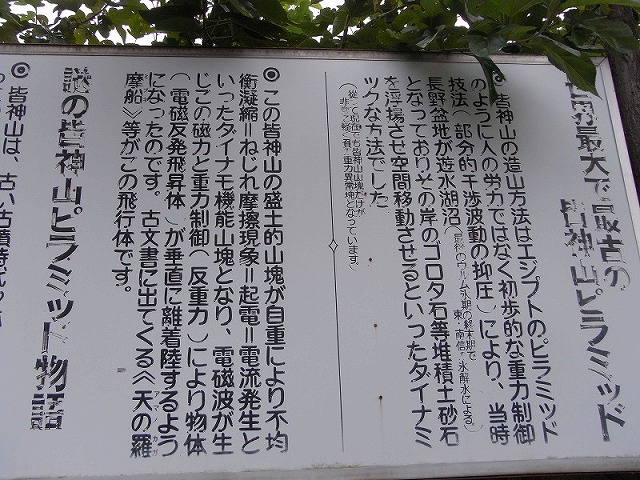 世界最大で最古の
皆神山ピラミッド
◎皆神山の造山方法はエジプトのピラミッド
のように人の労力ではなく初歩的な重力制御
技法(部分的干渉波動の抑圧)により、当時
長野盆地が遊水湖沼(最後のウルム氷期の終末期で
東・南信の氷解水による)
となっておりその岸のゴロタ石等堆積土砂石
を浮揚させ空間移動させるといったダイナミ
ックな方法でした
(従って現在でも皆神山山塊だけが
重力異常塊となっています。)
◎この皆神山の盛土的山塊が自重により不均
衡凝縮=ねじれ摩擦現象=起電=電流発生と
いったダイナモ機能山塊となり、電磁波が生
じこの磁力と重力制御(反重力)により物体
(電磁反発飛昇体)が垂直に離着陸するよう
になったのです。古文書に出てくる《天の羅
摩船》等がこの飛行体です。
謎の皆神山ピラミッド物語
◎皆神山は、古い古墳時代